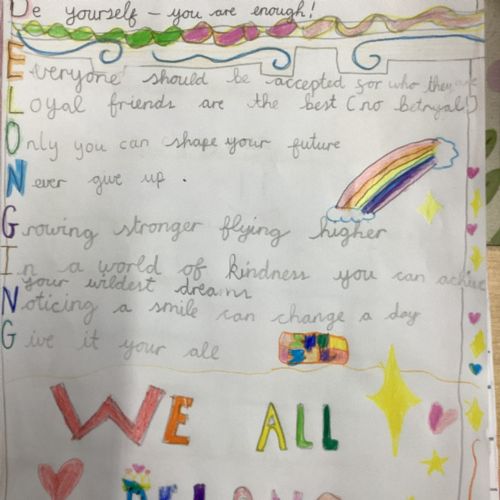 Be yourself – you are enough!
Everyone should be accepted for who they are
Loyal friends are the best (no betrayal!)
Only you can shape your future
Never give up.
Growing stronger flying higher
In a world of kindness you can achieve
your wildest dreams
Noticing a smile can change a day
Give it your all
WE ALL
BELONG